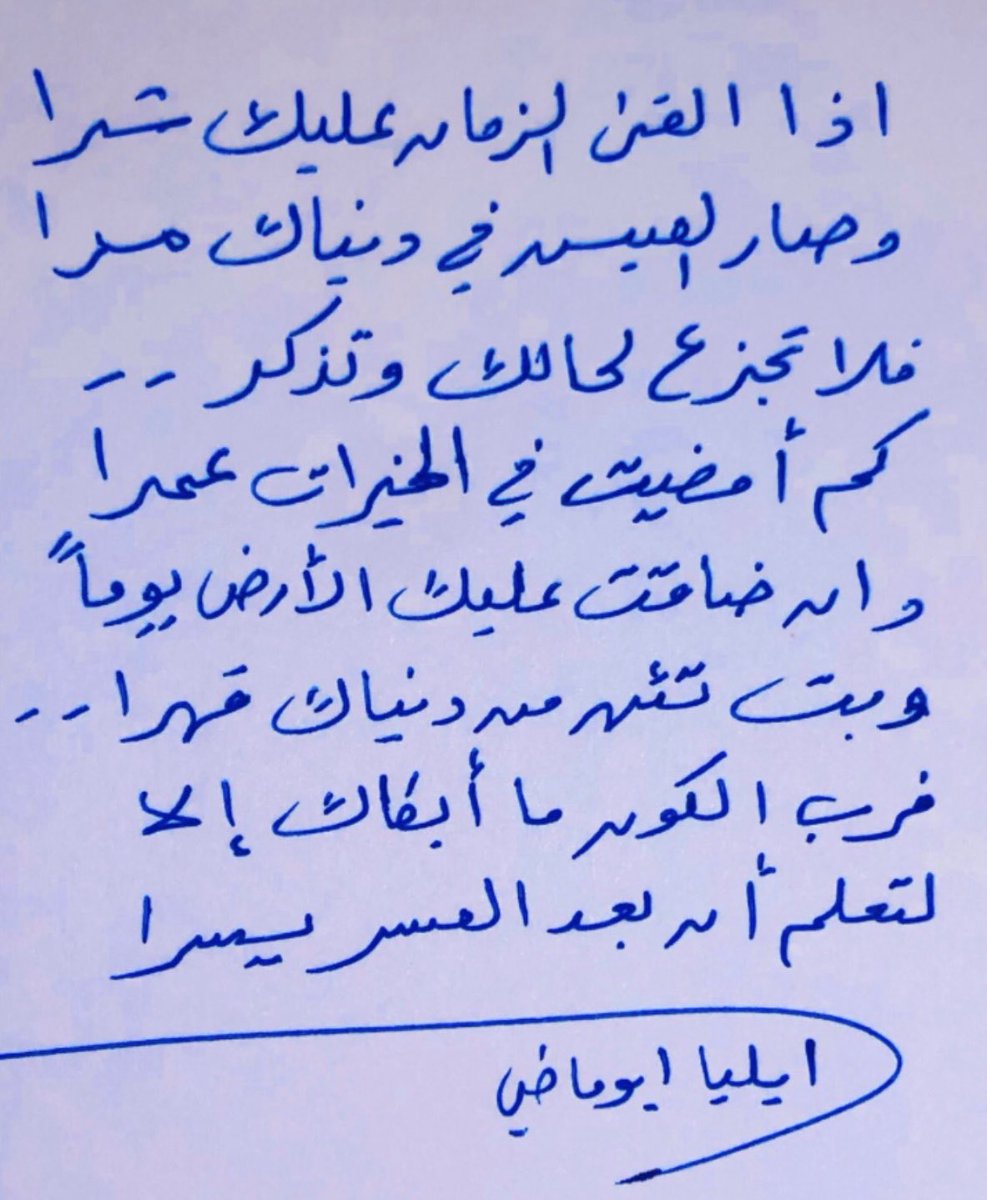 اذا القى الزمان عليك شرا
وصار العيش في دنياك مرا
فلا تجزع لحالك وتذكر --
كم أمضيت في الخيرات عمرا
وان ضاقت عليك الأرض يوماً
وبت تئن من دنياك قهرا --
فرب الكون ما أبكاك إلا
لتعلم أن بعد العسر يسرا
ايليا ابوماضي